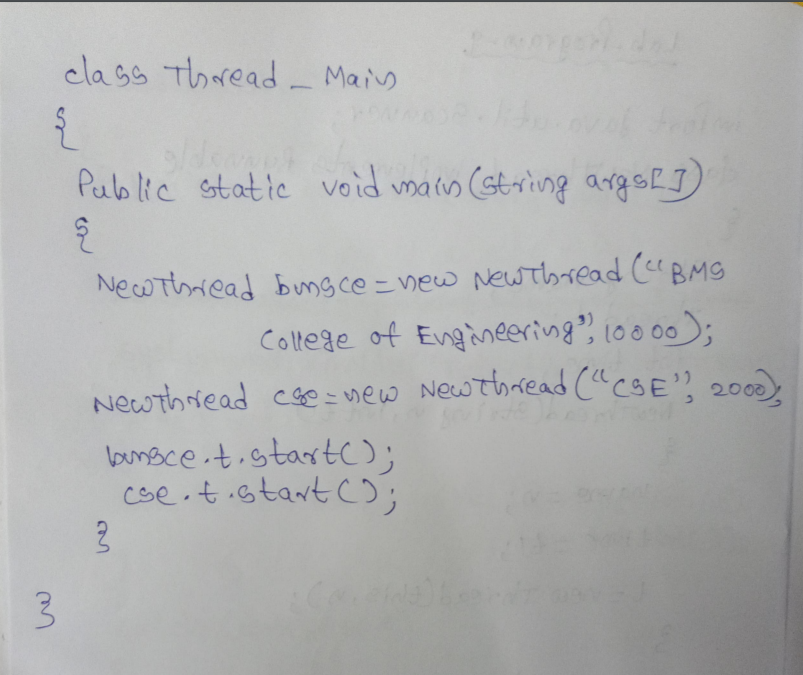 class Thread_Main
{
Public static void main(string args[])
{
NewThread bmsce=new NewThread("BMS
College of Engineering", 10000);
NewThread cse=new NewThread("CSE", 2000);
bmsce.t.start();
cse.t.start();
}
}